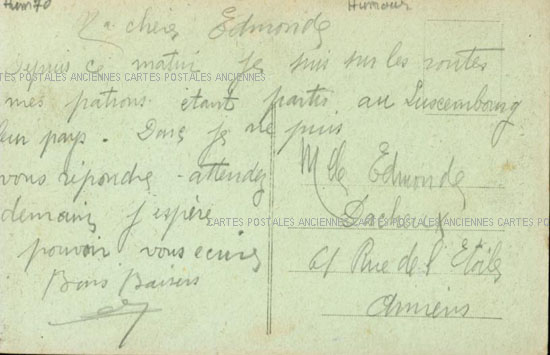 Hum70
Humour
Ma chère Edmonde
Depuis ce matin je suis sur les routes
CARTES POSTALES ANCIENNES CARTES POSTALES ANCIENNES CARTES POSTALES ANCIENNES
mes patrons étant partis au Luxembourg
leur pays. Donc je ne puis
vous répondre attendez
demain j'espère
pouvoir vous écrire
Bons Baisers
Mlle Edmonde
CARTES POSTALES ANCIENNES CARTES POSTALES ANCIENNES
61 Rue de l'Etoile
Amiens